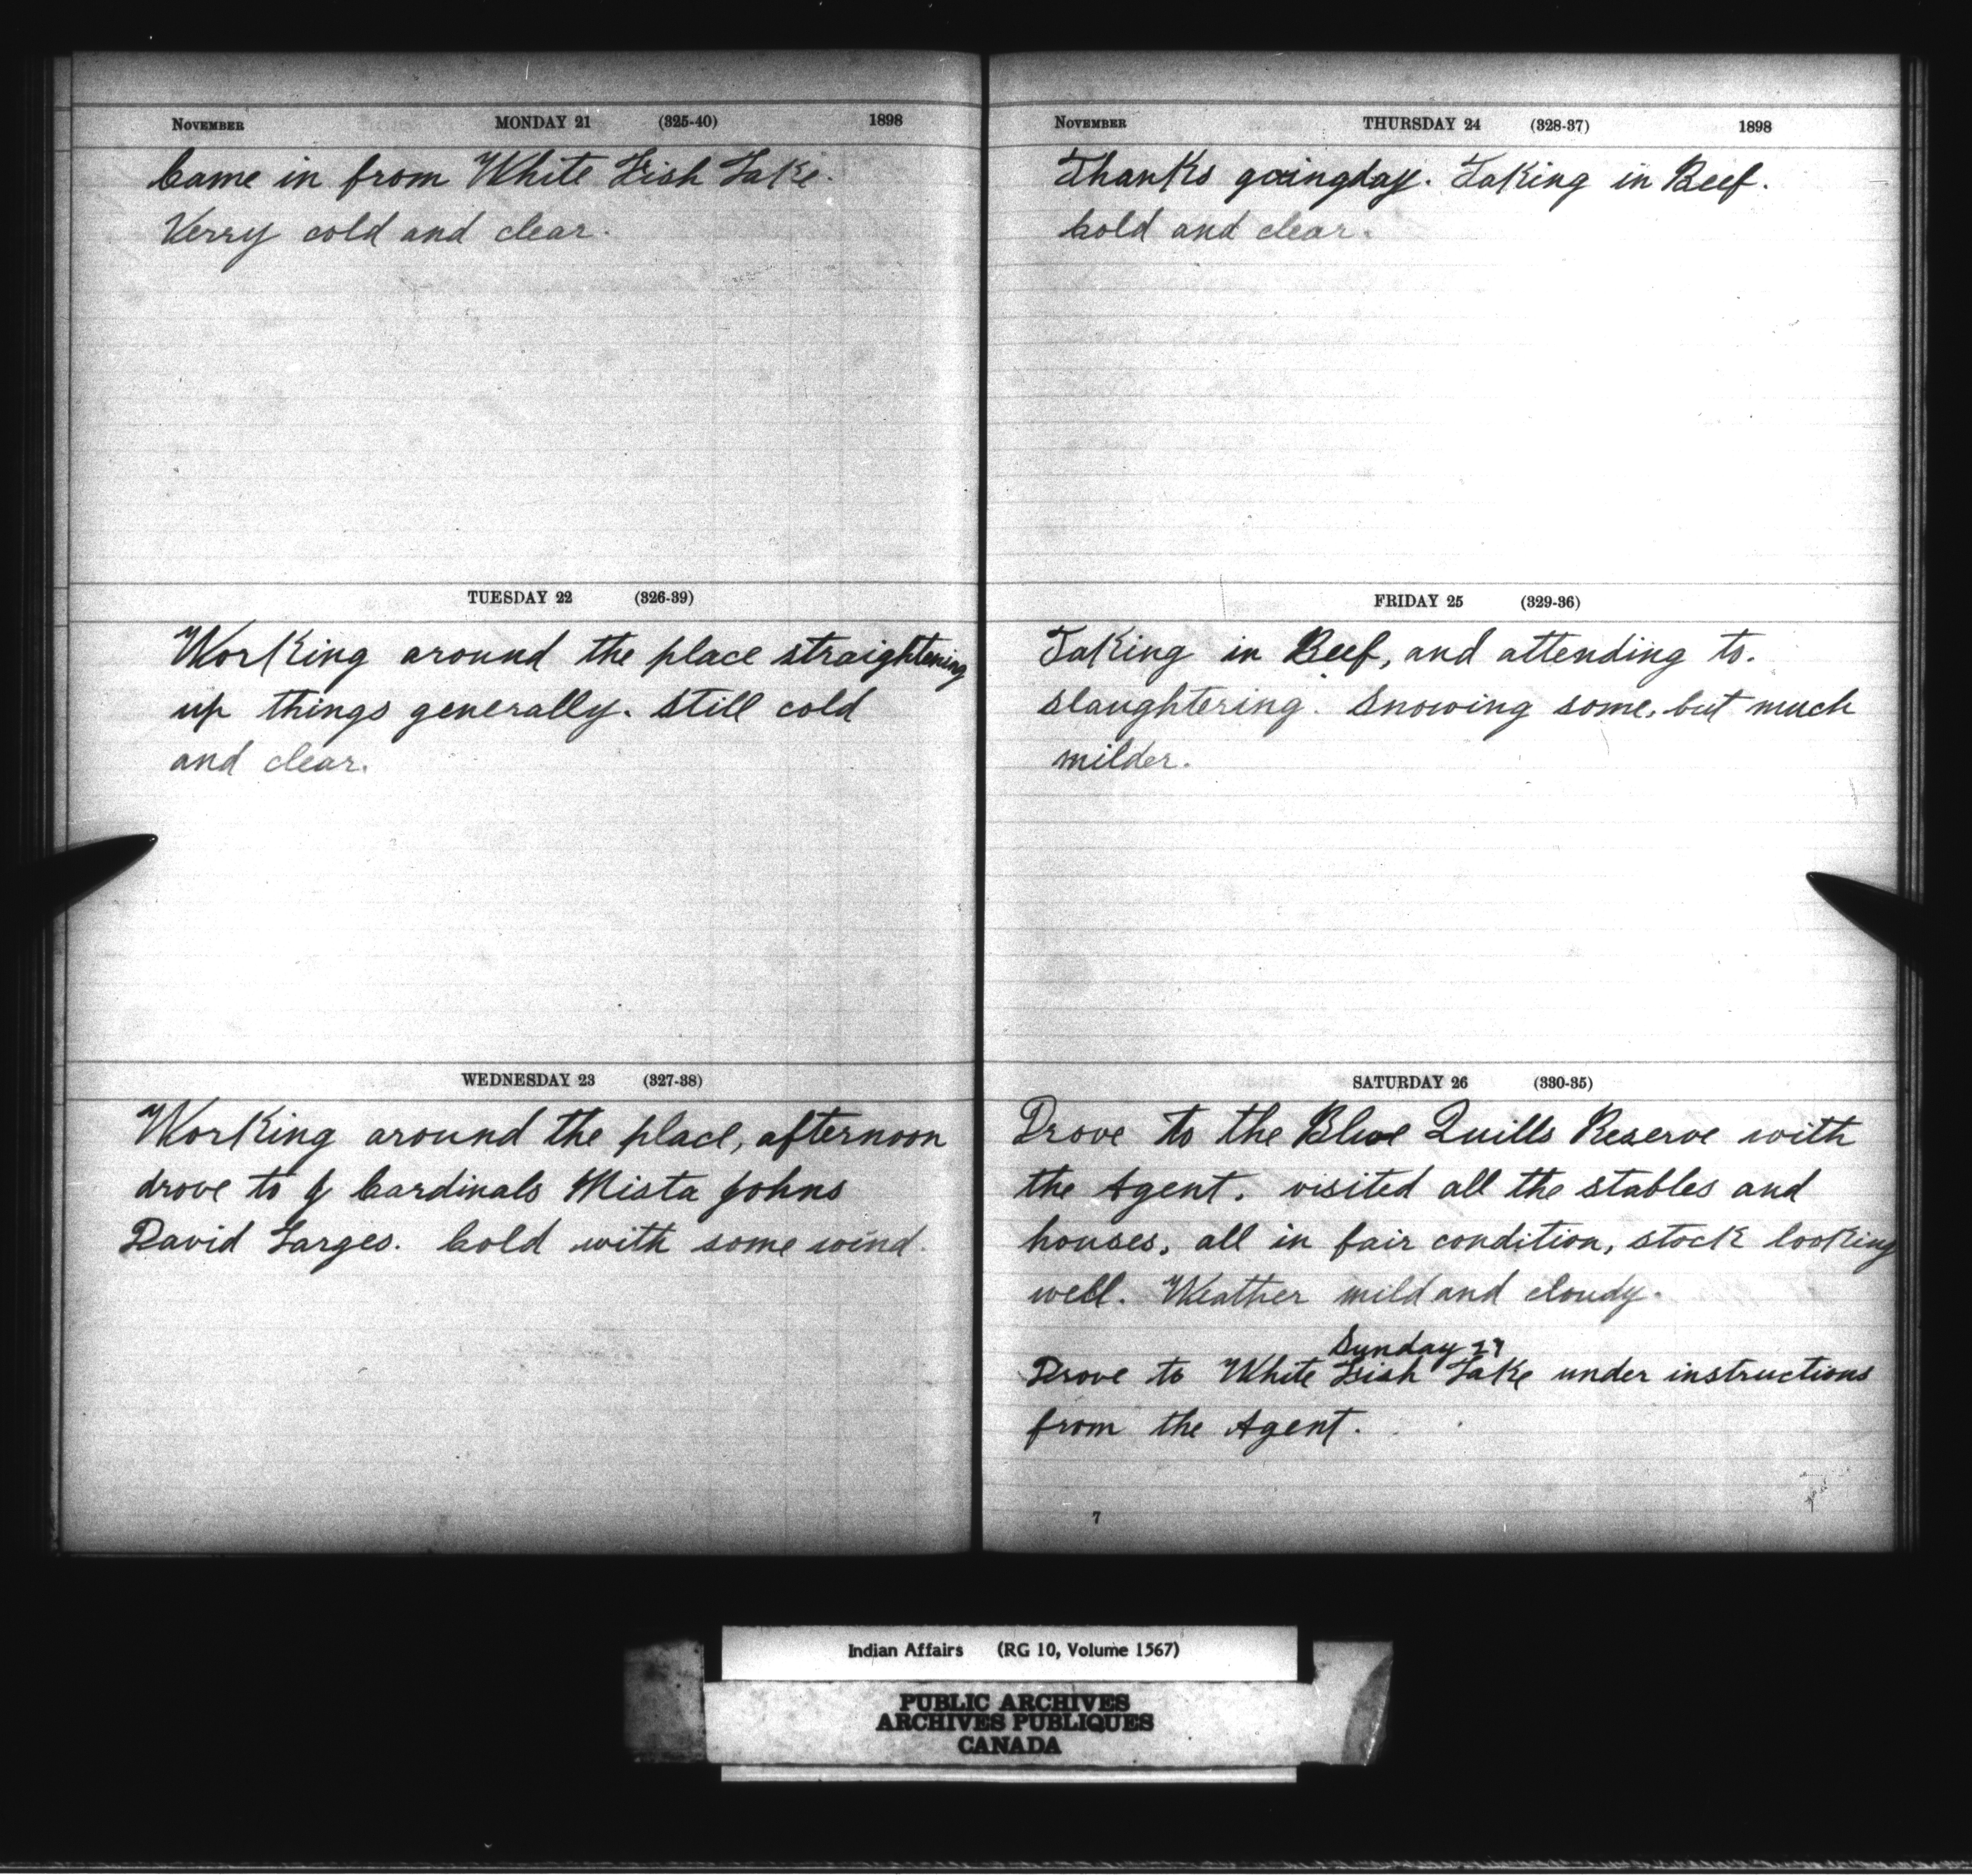 NOVEMBER MONDAY 21 (325-40) 1898
Came in from White Fish Lake.
Verry cold and clear.
TUESDAY 22 (326-39)
Working around the place straightening
up things generally. Still cold
and clear.
WEDNESDAY 23 (327-38)
Working around the place, afternoon
drove to J Cardinals Mista Johns
David Larges. Cold with some wind.
NOVEMBER THURSDAY 24 (328-37) 1898
Thanks goingday. Taking in Beef.
Cold and clear.
FRIDAY 25 (329-36)
Taking in Beef, and attending to.
slaughtering. Snowing some, but much
milder.
SATURDAY 26 (330-35)
Drove to the Blue Quills Reserve with
the Agent. visited all the stables and
houses, all in fair condition, stock looking
well. Weather mild and cloudy.
Sunday 27
Drove to White Fish Lake under instructions
from the Agent.
7
Indian Affairs (RG 10, Volume 1567)
PUBLIC ARCHIVES
ARCHIVES PUBLIQUES
CANADA